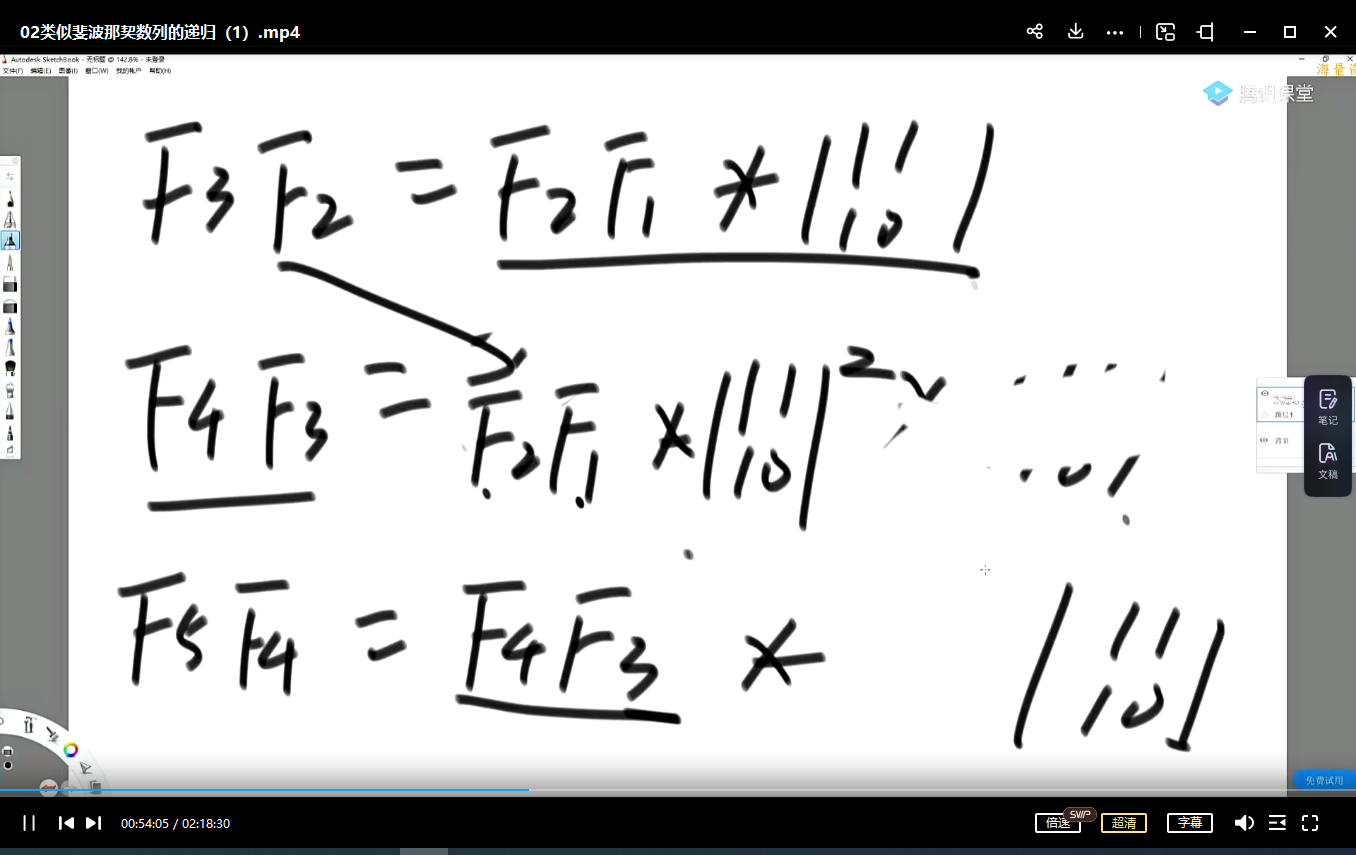 02类似斐波那契数列的递归（1）.mp4
Autodesk SketchBook - 无标题 @ 142.8% - 未登录
文件(F) 编辑(E) 图像(I) 窗口(W) 我的帐户 帮助(H)
海量
腾讯课堂
F3 F2 = F2 F1 * | 1 1
1 0 |
F4 F3 = F2 F1 * | 1 1 | 2
1 0
笔记
图层1
背景
文稿
F5 F4 = F4 F3 * | 1 1
1 0 |
免费试用
00:54:05 / 02:18:30
倍速
SWP
超清
字幕